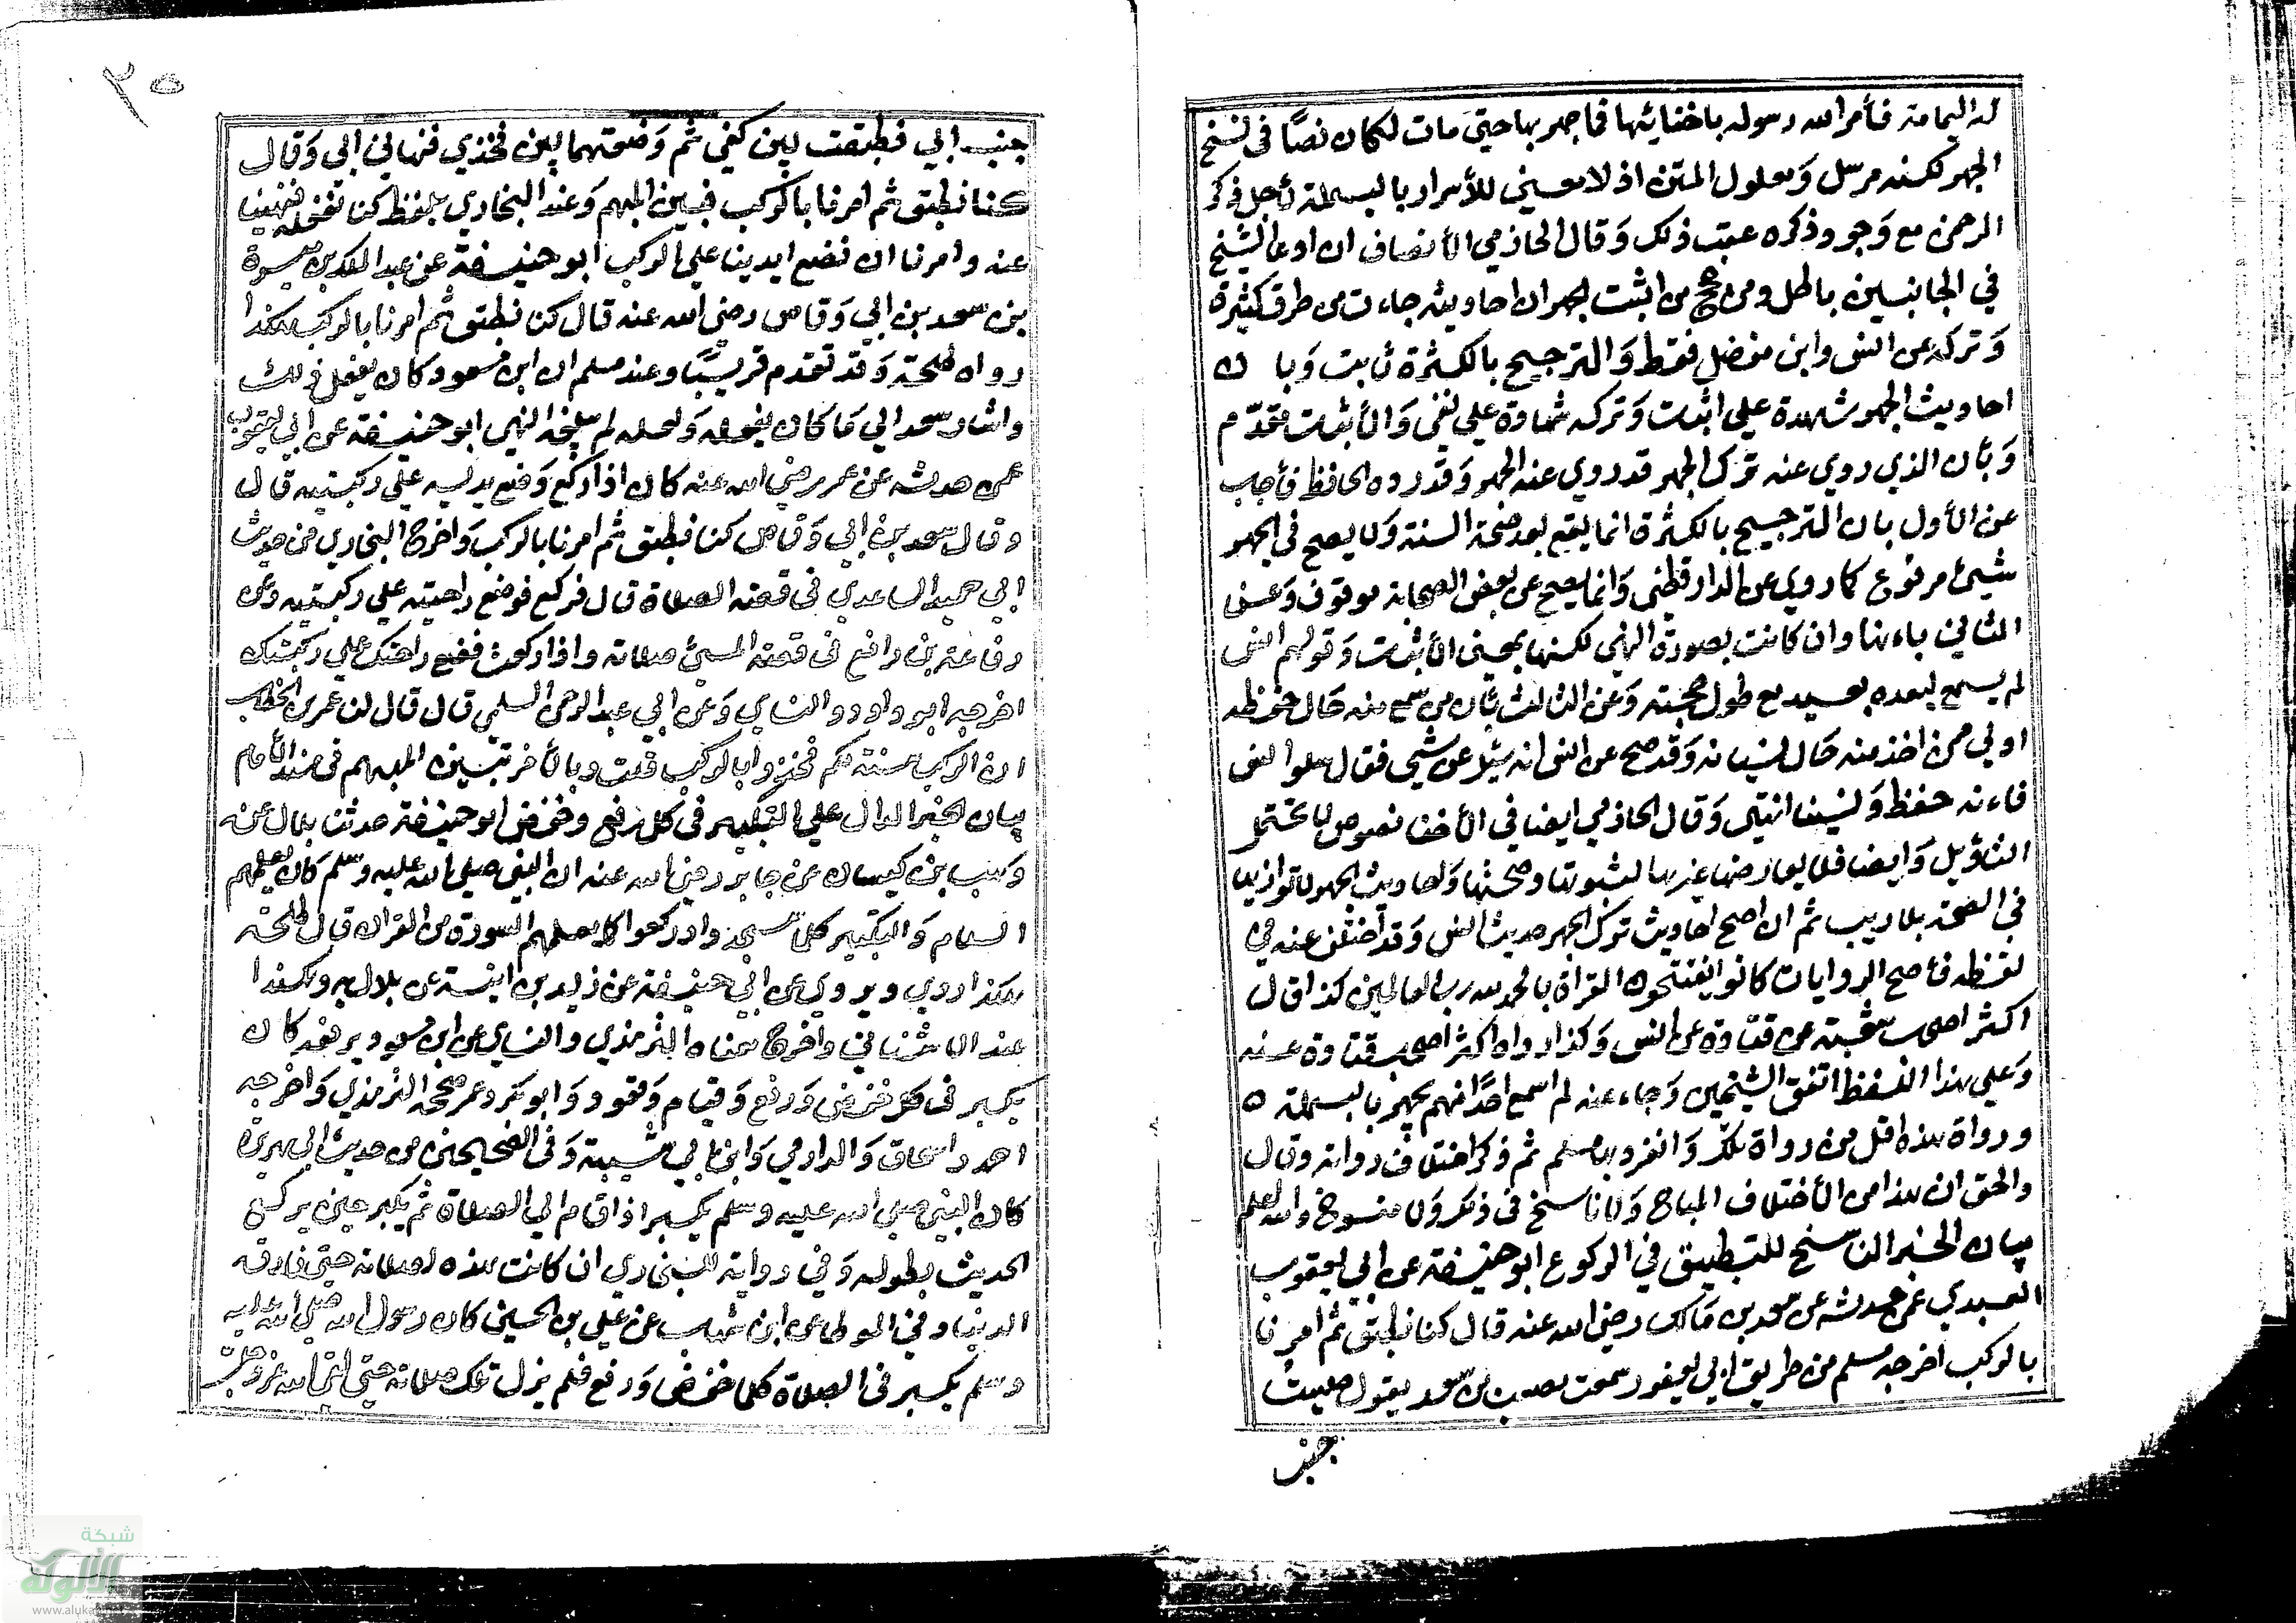 له اليمامة فأمر الله رسوله باخفائها فما جهر بها حتى مات لكان نصًا في نسخ
الجهر لكنه مرسل وَمعلول المتن اذ لا معنى للأسرار بالبسملة لأجل ذكر
الرحمن مع وَجود ذكره عقب ذلك وَقال الحازمي الأنصاف ان ادعا النسخ
في الجانبين باطل ومن حجج من اثبت الجهر ان احاديثه جاءت من طرق كثيرة
وَتركه عن انس وابن مغفل فقط وَالترجيح بالكثرة ثابت وَبان
احاديث الجهر شهدة علي اثبات وَتركه شهادة علي نفي وَالأثبات مقدّم
وَبأن الذي روي عنه ترك الجهر قد روي عنه الجهر وَقد رده الحافظ فأجاب
عن الأول بان الترجيح بالكثرة انما يقع بعد صحة السنة وَلا يصح في الجهر
شيئ مرفوع كما روي عن الدارقطني وَانما يصح عن بعض الصحابة موقوف وَعن
الثاني باءنها وان كانت بصورة النهي لكنها بمعنى الأثبات وَقولهم انس
لم يسمع لبعده بعيد مع طول صحبته وَعن الثالث بأن من سمع منه حَال حفظه
اولي ممن اخذ منه حَال نسيانه وَقد صح عن انس انه سئل عن شيئ فقال سلوا انس
فاءنه حفظ وَنسينا انتهى وَقال الحازمي ايضا في الأخفا نصوص لا تحتمل
التأويل وَايضا فلا يعارضها غيرها لثبوتها وصحتها وَاحاديث الجهر لا توازيها
في الصحة بلا ريب ثم ان اصح احاديث ترك الجهر حديث انس وَقد اختلف عنه في
لفظه فأصح الروايات كانوا يفتتحون القراة بالحمد لله رب العالمين كذا قال
اكثر اصحاب شعبة عن قتادة عن انس وَكذا رواه اكثر اصحاب قتادة عنه
وَعلي هذا اللفظ اتفق الشيخين وَجاء عنه لم اسمع احَدًا منهم يجهر بالبسملة ه
ورواة هذه اقل من رواة تلك وَانفرد بها مسلم ثم ذكر اختلاف رواته وقال
والحق ان هذا من الأختلاف المباح وَلا ناسخ في ذلك وَلا منسوخ والله اعلم
بيان الخبر الناسخ للتطبيق في الركوع ابو حنيفة عن ابي يعقوب
العبدي عمن حدثه عن سعد بن مَالك رضي الله عنه قال كنا نطبق ثم امرنا
بالركب اخرجه مسلم من طريق ابي يعفور سمعت مصعب بن سعد يقول صليت
جنب
٣٥
جنب ابي فطبقت بين كفي ثم وَضعتهما بين فخذي فنهاني ابي وَقال
كنا نطبق ثم امرنا بالركب فبين المبهم وَعند البخاري بلفظ كنا نفعله فنهينا
عنه وامرنا ان نضع ايدينا علي الركب ابو حنيفة عن عبد الملك بن ميسرة
بن سعد بن ابي وَقاص رضي الله عنه قال كنا نطبق ثم امرنا بالركب هكذا
رواه طلحة وَقد تقدم قريبًا وعند مسلم ان ابن مسعود كان يفعل ذلك
واشار سعد الي مَا كان يفعله وَلعله لم يبلغه النهي ابو حنيفة عن ابي يعقوب
عمن حدثه عن عمر رضي الله عنه كان اذا ركع وَضع يديه علي ركبتيه قال
وقال سعد بن ابي وَقاص كنا نطبق ثم امرنا بالركب وَاخرج البخاري من حديث
ابي حميد الساعدي في قصة الصلاة قال فركع فوضع راحتيه علي ركبتيه وعن
رفاعة بن رافع في قصة المسيئ صلاته واذا ركعت فضع راحتك علي ركبتيك
اخرجه ابو داود والنساي وَعن ابي عبد الرحمن السلمي قال قال لنا عمر بن الخطاب
ان الركب سنة لكم فخذوا بالركب قلت وبالأخر تبين المبهم في مسند الأمام
بيان الخبر الدال علي التكبير في كل رفع وخفض ابو حنيفة حدثنا بلال عن
وَهب بن كيسان عن جابر رضي الله عنه ان النبي صلي الله عليه وسلم كان يعلمهم
السلام وَالتكبير كلما سجدوا وركعوا كما يعلمهم السورة من القران قال طلحة
هكذا روي ويروي عن ابي حنيفة عن زيد بن ابي انيسة عن بلال به وهكذا
عند الاشناني واخرج معناه الترمذي والنساي عن ابن مسعود يرفعه كان
يكبر في كل خفض وَرفع وَقيام وَقعود وَابو بكر وعمر صححه الترمذي وَاخرجه
احمد واسحاق وَالدارمي وَابن ابي شيبة وَفي الصحيحين من حديث ابي هريرة
كان النبي صلي الله عليه وسلم يكبر اذا قام الي الصلاة ثم يكبر حين يركع
الحديث بطوله وَفي رواية للبخاري ان كانت هذه لصلاته حتى فارق
الدنيا وفي الموطا عن ابن شهاب عن علي بن الحسين كان رسول الله صلي الله عليه
وسلم يكبر في الصلاة كلما خفض وَرفع فلم يزل تلك صلاته حتى لقي الله عز وجل
شبكة
الألوكة